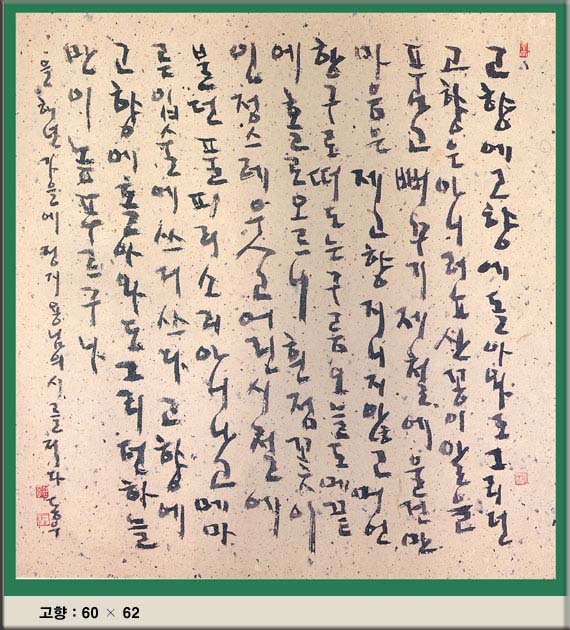 고향에고향에돌아와도그리던
고향은아니러뇨산꽁이알을
품고뻐꾸기제철에울건만
마음은제고향지니지않고머언
항구로떠도는구름오늘도메끝
에홀로오르니흰점꽃이
인정스레웃고어린시절에
불던풀피리소리아니나고메마
른입술에쓰디쓰다고향에
고향에돌아와도그리던하늘
만이높푸르구나
을해년가을에정지용님의시를적다
고향 : 60 × 62